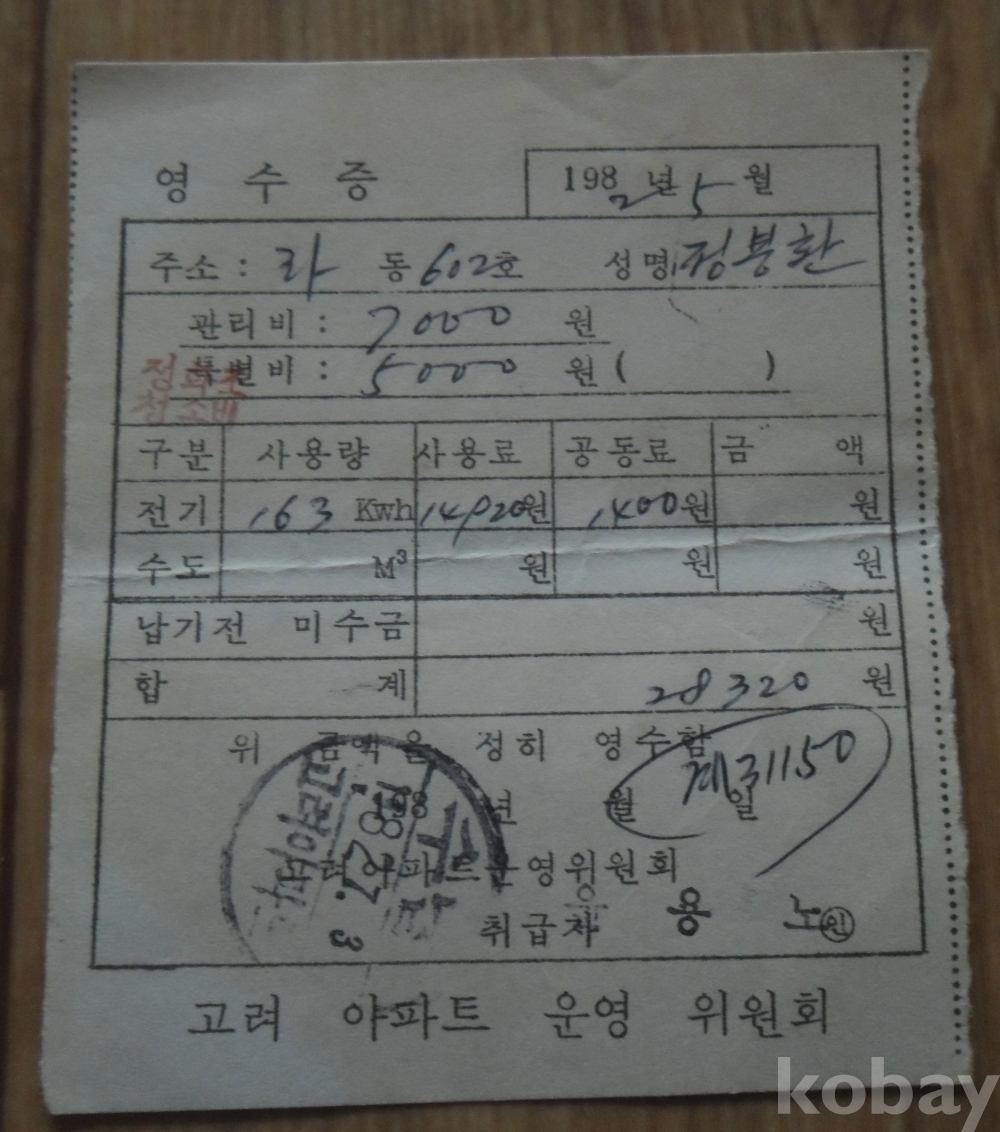 영 수 증
1982년 5월
주소 : 라 동 602호 성명 정봉환
관리비 : 7000 원
특별비 : 5000 원 ( )
정화조
청소비
구분 사용량 사용료 공동료 금 액
전기 163 Kwh 14920원 1,400원 원
수도 M³ 원 원 원
납기전 미수금 원
합 계 28320 원
위 금액을 정히 영수함
계 31150
198 년 월 일
고려아파트운영위원회
취급자 용 노 인
고려 아파트 운영 위원회
kobay